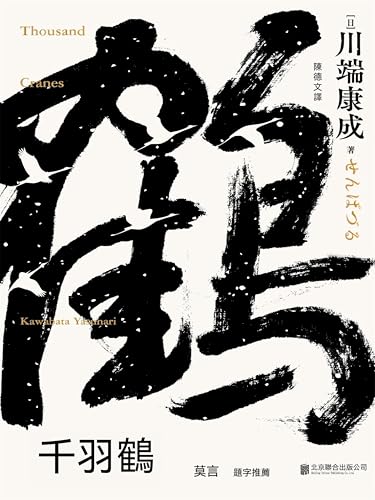 Thousand
Cranes
[日]川端康成 著
陳德文 譯
せんばづる
鶴
Kawabata Yasunari
千羽鶴
莫言 題字推薦
北京聯合出版公司